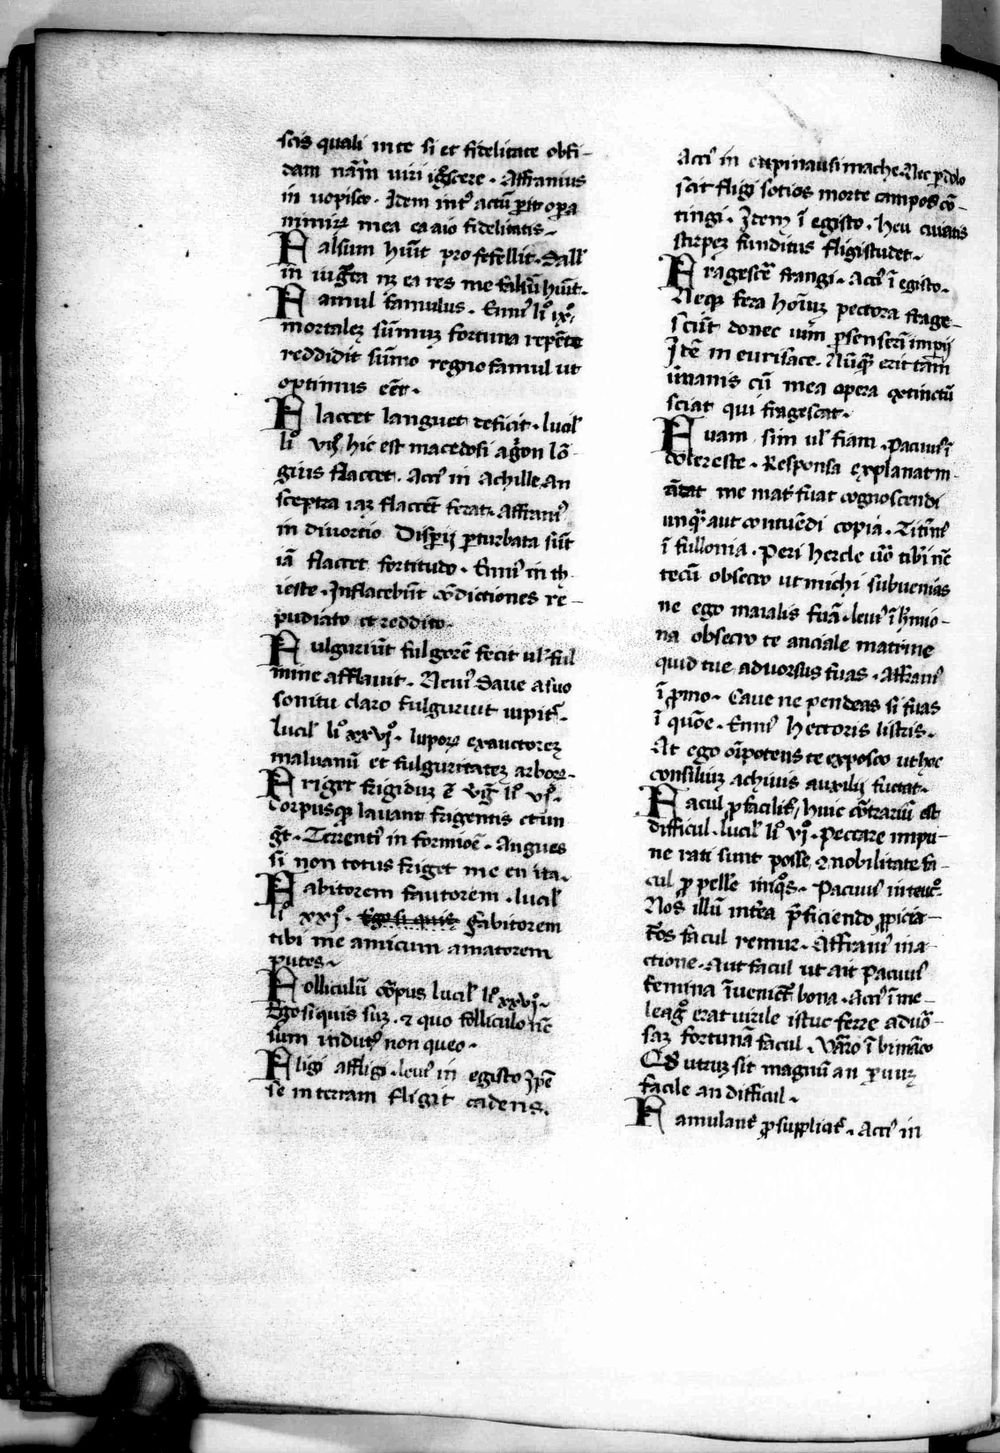 scis quali in te si et fidelitate obsi-
dam nām uiri iḡscere. Affranius
in uopisco. Idem inť actū ꝑiť opa
nimiꝝ mea ea aio fidelitatis.
Falsum hūit pro fefellit. Sall᷒
in iugťta nꝫ ea res me falsū hūit.
Famul famulus. Enni᷒ liº ixº
mortalēꝫ sūmuꝫ fortuna repēte
reddidit sūmo regno famul ut
optimus eēt.
Flaccet languet deficit. lucil᷒
liº viiº hic est macedo si agͦon lō-
gius flaccet. Acci᷒ in Achille. An
sceptra iaꝫ flaccēt ferat. Affrani᷒
in diuortio Disꝑij ꝑturbata sūt
iā flaccet fortitudo. Enni᷒ in th-
ieste. Inflacebūt cōdictiones re-
pudiato et reddito.
Fulguriuit fulgorē fecit ul᷒ ful
mine afflauit. Neui᷒ Dane a suo
sonitu claro fulguriuit iupiť.
lucil᷒ liº xxviº. luporꝫ exauctorēꝫ
maluanū et fulguritatēꝫ arbore.
Friget frigiduꝫ ē virg᷒ liº viº.
Corpusqꝫ lauant frigentis et un
gūt. Terenti᷒ in formiōe. Angues
si non totus friget me en ita.
Fabitorem fautorem. lucil᷒
liº xxiº. Ego si quis fabitorem
tibi me amicum amatorem
putes.
Folliculū corpus lucil᷒ liº xxviº.
Ego si quis suꝫ. & quo folliculo nūc
sum induť non queo.
Fligi affligi. leui᷒ in egisto Ipē
se in terram fligit cadens.
Acci᷒ in epinausimache. Nec ꝑ dolo
scit fligi sotios morte campos cō-
tingi. Item ī egisto. heu cuiatis
stirpeꝫ funditus fligi studet.
Fragescē frangi. Acci᷒ ī egisto.
Neqꝫ fera hoīuꝫ pectora frage-
scūt donec uim ꝑsenserūt impij
Itē in eurisace. Nūqꝫ erit tam
inmanis cū mea opera extinctū
sciat qui fragescat.
Fuam sim ul᷒ fiam. Pacuui᷒ ī
doloreste. Responsa explanat m-
andat me mať fuat cognoscendi
unqꝫ aut contuēdi copia. Titini᷒
ī fullonia. Peri hercle uō tibi nē
tecū obsecro ut michi subuenias
ne ego maialis fuā. leui᷒ ī hmio-
na obsecro te anciale matrine
quid tue aduorsus fuas. Affrani᷒
ī ꝓmo. Caue ne pendeas si fuas
ī quōe. Enni᷒ hectoris listris.
At ego oīpotens te exposco ut hoc
consiliuꝫ achiuis auxilij fuctat.
Facul ꝓ facilē, huic cōtrariū est
difficul. lucil᷒ liº viº. Peccare impu-
ne rati sunt posse & nobilitate fa-
cul ꝓpelle iniqͦs. Pacuui᷒ in teucͦ.
Nos illū intea ꝓficiendo ꝓpicia-
tōs facul remur. Affrani᷒ in a-
ctione. Aut facul ut ait Pacuui᷒
femina īuenieť bona. Acci᷒ ī me-
leagͦ erat uirile istuc ferre aduō-
saꝫ fortunā facul. Varo ī bimāco
Cū utruꝫ sit magnū an ꝑuuꝫ
facile an difficul.
Famulanť ꝓ supplicit᷒. Acci᷒ in